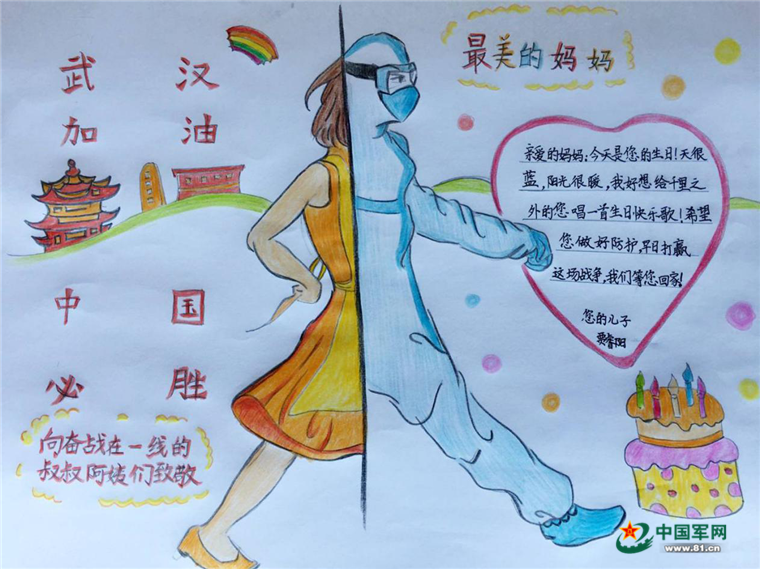 武汉
加油
中国
必胜
向奋战在一线的
叔叔阿姨们致敬
最美的妈妈
亲爱的妈妈:今天是您的生日!天很
蓝,阳光很暖,我好想给千里之
外的您唱一首生日快乐歌!希望
您做好防护,早日打赢
这场战争,我们等您回家!
您的儿子
中国军网
www.81.cn